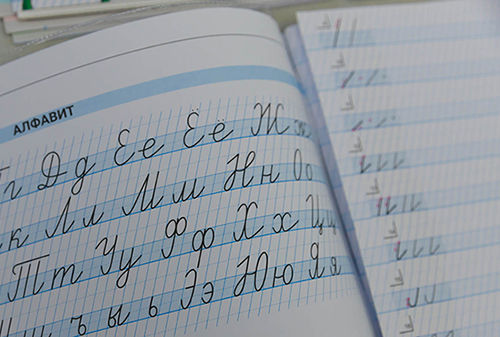 АЛФАВИТ
г Д д Е е Ё ё Ж ж
к Л л М м Н н О о
Т т У у Ф ф Х х Ц ц
щ ъ ы ь Э э Ю ю Я я